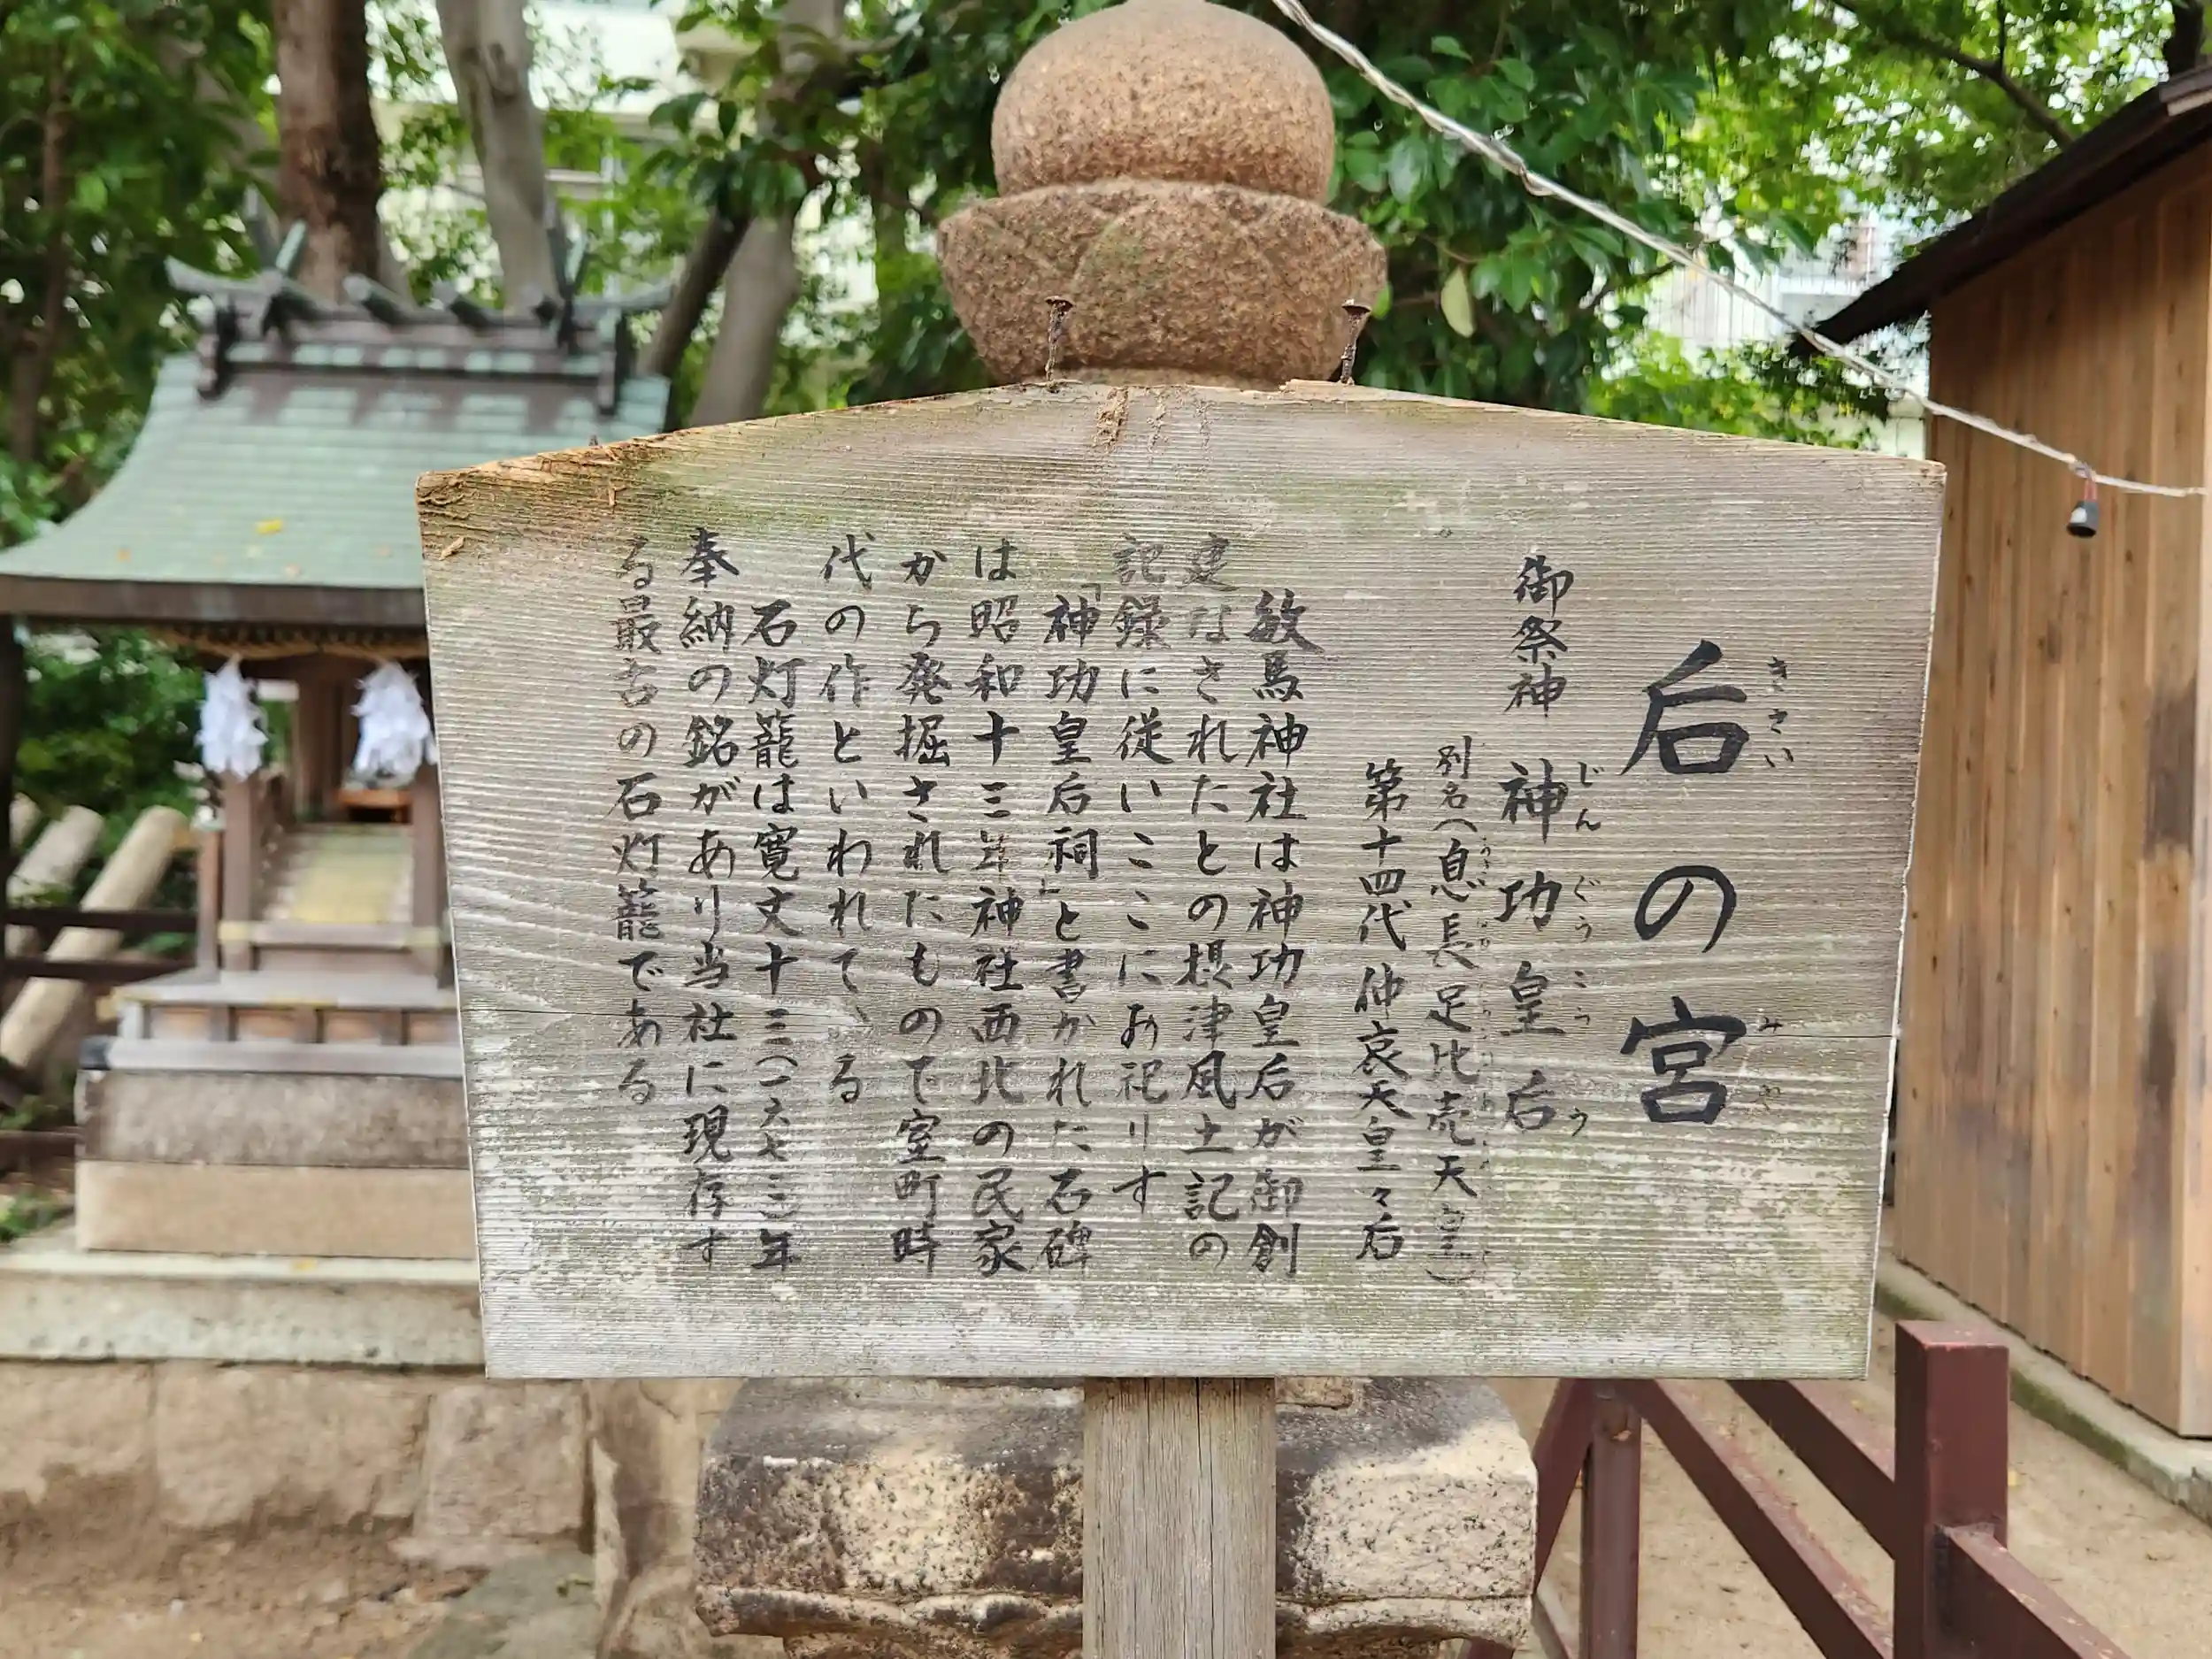 后の宮
きさい みや
御祭神 神功皇后
じんぐうこうごう
別名(息長足比売天皇)
第十四代 仲哀天皇々后
敏馬神社は神功皇后が御創
建なされたとの摂津風土記の
記録に従いここにお祀りす
「神功皇后祠」と書かれた石碑
は昭和十三年神社西北の民家
から発掘されたもので室町時
代の作といわれている
石灯籠は寛文十三(一六七三)年
奉納の銘があり当社に現存す
る最古の石灯籠である